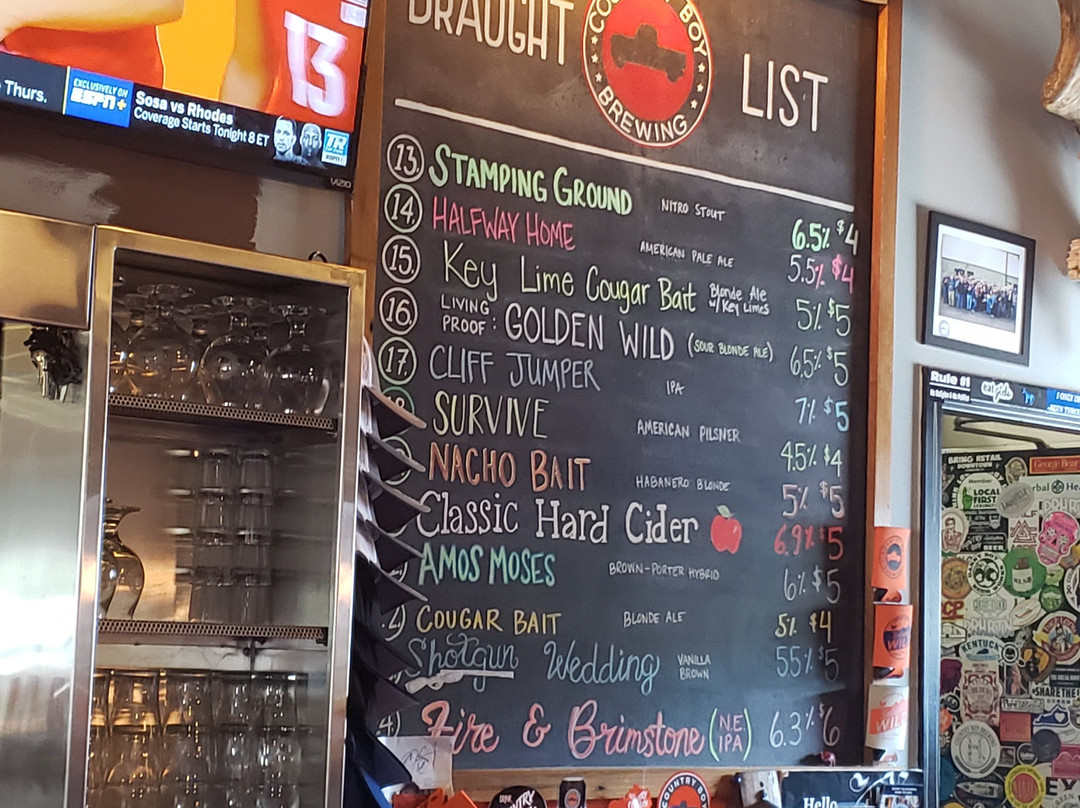 Thurs.
EXCLUSIVELY ON
ESPN+
Sosa vs Rhodes
Coverage Starts Tonight 8 ET
TR
ESPN
13
VIZIO
DRAUGHT LIST
COUNTRY BOY
BREWING
13 STAMPING GROUND NITRO STOUT 6.5% $4
14 HALFWAY HOME AMERICAN PALE ALE 5.5% $4
15 Key Lime Cougar Bait Blonde Ale
w/Key Limes 5% $5
16 LIVING
PROOF: GOLDEN WILD (SOUR BLONDE ALE) 6.5% $5
17 CLIFF JUMPER IPA 7% $5
SURVIVE AMERICAN PILSNER 4.5% $4
NACHO BAIT HABANERO BLONDE 5% $5
Classic Hard Cider 6.9% $5
AMOS MOSES BROWN-PORTER HYBRID 6% $5
COUGAR BAIT BLONDE ALE 5% $4
Shotgun Wedding VANILLA
BROWN 5.5% $5
4) Fire & Brimstone (N.E.
IPA) 6.3% $6
Rule #1
eat
BRING RETAIL
DOWNTOWN
Member
LOCAL
FIRST
George Bear
KENTUCKY
SHARE THE
WILD
COUNTRY BOY
Hello